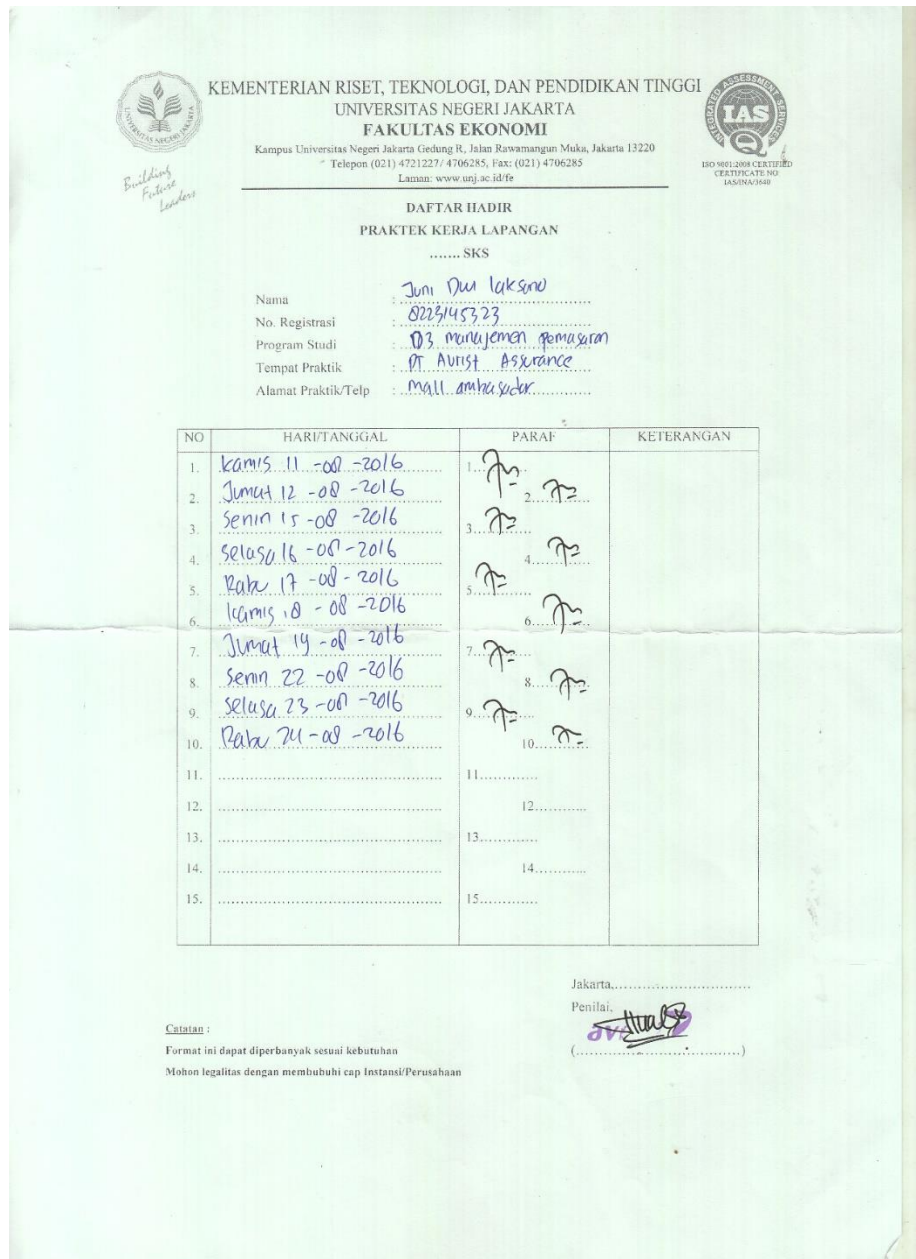 KEMENTERIAN RISET, TEKNOLOGI, DAN PENDIDIKAN TINGGI
UNIVERSITAS NEGERI JAKARTA
FAKULTAS EKONOMI
Kampus Universitas Negeri Jakarta Gedung R, Jalan Rawamangun Muka, Jakarta 13220
Telepon (021) 4721227/ 4706285, Fax: (021) 4706285
Laman: www.unj.ac.id/fe
UNIVERSITAS NEGERI JAKARTA
Building
Future
Leaders
INTEGRATED ASSESSMENT SERVICES
IAS
ISO 9001:2008 CERTIFIED
CERTIFICATE NO:
IAS/INA/3640
DAFTAR HADIR
PRAKTEK KERJA LAPANGAN
....... SKS
Nama : Juni Dwi laksono
No. Registrasi : 8223145323
Program Studi : D3 manajemen pemasaran
Tempat Praktik : PT Avrist Assurance
Alamat Praktik/Telp : Mall ambasador
NO HARI/TANGGAL PARAF KETERANGAN
1. Kamis 11 -08 -2016 1.
2. Jumat 12 -08 -2016 2.
3. Senin 15 -08 -2016 3.
4. Selasa 16 -08 -2016 4.
5. Rabu 17 -08 - 2016 5.
6. Kamis 18 - 08 -2016 6.
7. Jumat 19 -08 -2016 7.
8. Senin 22 -08 -2016 8.
9. Selasa 23 -08 -2016 9.
10. Rabu 24 -08 -2016 10.
11. 11.
12. 12.
13. 13.
14. 14.
15. 15.
Jakarta,
Penilai,
Catatan :
Format ini dapat diperbanyak sesuai kebutuhan
Mohon legalitas dengan membubuhi cap Instansi/Perusahaan